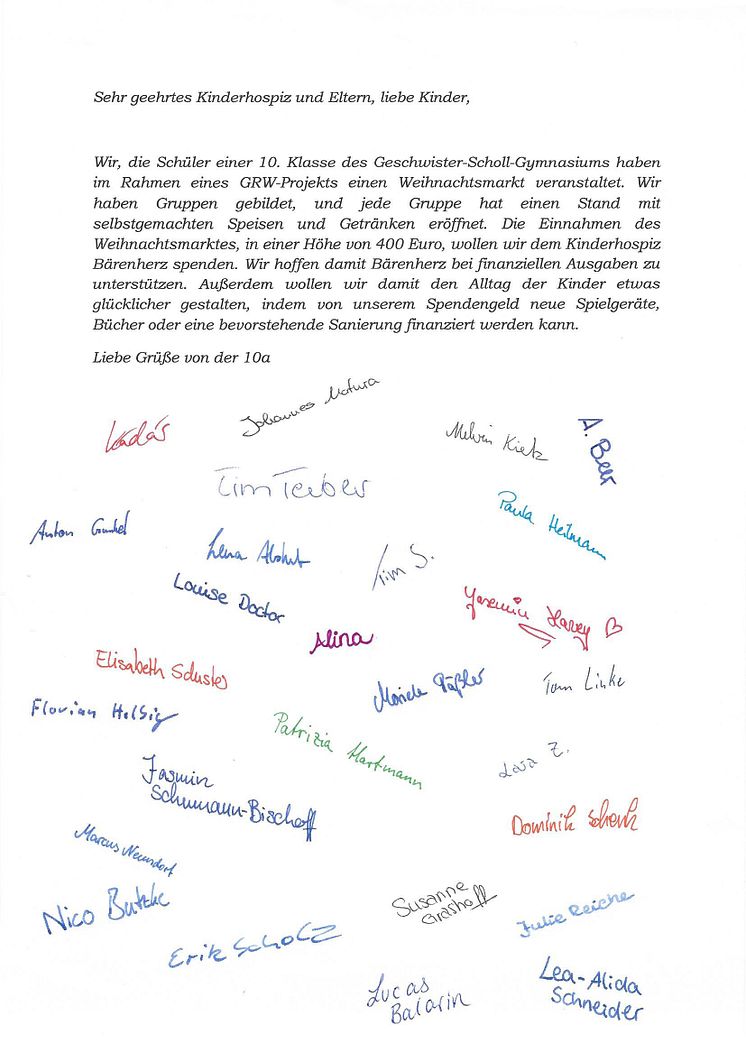 Sehr geehrtes Kinderhospiz und Eltern, liebe Kinder,
Wir, die Schüler einer 10. Klasse des Geschwister-Scholl-Gymnasiums haben
im Rahmen eines GRW-Projekts einen Weihnachtsmarkt veranstaltet. Wir
haben Gruppen gebildet, und jede Gruppe hat einen Stand mit
selbstgemachten Speisen und Getränken eröffnet. Die Einnahmen des
Weihnachtsmarktes, in einer Höhe von 400 Euro, wollen wir dem Kinderhospiz
Bärenherz spenden. Wir hoffen damit Bärenherz bei finanziellen Ausgaben zu
unterstützen. Außerdem wollen wir damit den Alltag der Kinder etwas
glücklicher gestalten, indem von unserem Spendengeld neue Spielgeräte,
Bücher oder eine bevorstehende Sanierung finanziert werden kann.
Liebe Grüße von der 10a
Johannes Matura
Melvin Kietz
A. Beer
Tim Teuber
Paula Heilmann
Anton
Lena
Tim S.
Louise Doctor
Yasemin
Alina
Elisabeth Schuster
Tom Linke
Florian Helbig
Patrizia Hartmann
Lara Z.
Jasmin
Schumann-Bischoff
Dominik Schenk
Marcus Neundorf
Nico Butzke
Susanne
Grashoff
Julie Reiche
Erik Scholz
Lea-Alida
Schneider
Lucas
Balarin